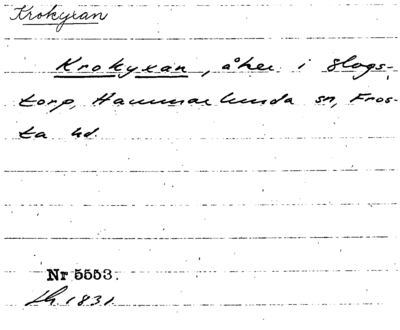 Krokyxan
Krokyxan, åker i Slogs-
torp, Hammarlunda sn, Fros-
ta hd.
Nr 5553.
1831.